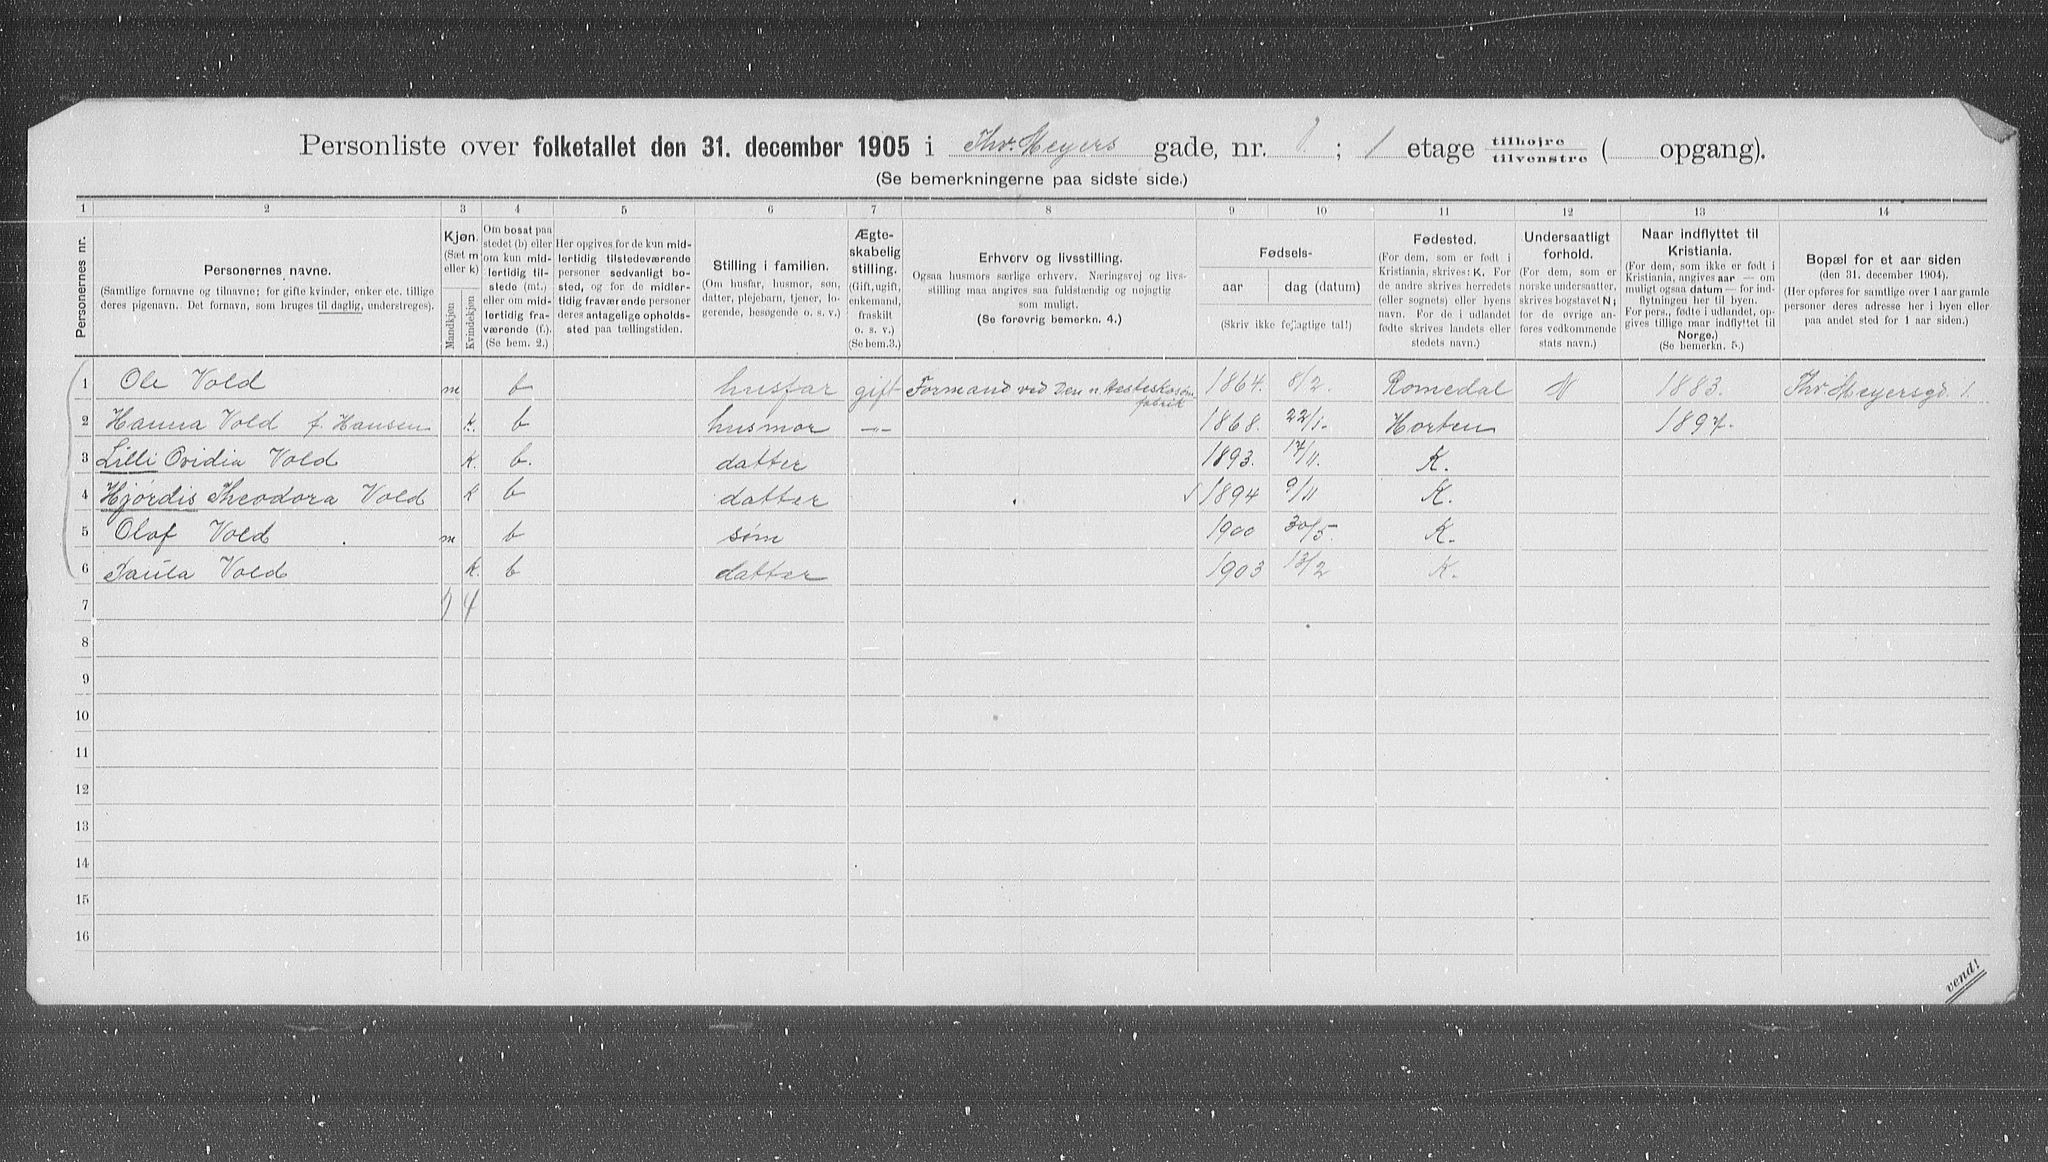 Personliste over folketallet den 31. december 1905 i Thv. Meyers gade, nr. 1 ; 1 etage tilhøjre tilvenstre ( opgang).
(Se bemerkningerne paa sidste side.)
1 2 3 4 5 6 7 8 9 10 11 12 13 14
Personernes nr.
Personernes navne.
(Samtlige fornavne og tilnavne; for gifte kvinder, enker etc. tillige
deres pigenavn. Det fornavn, som bruges til daglig, understreges).
Kjøn.
(Sæt m
eller k)
Mandkjøn
Kvindekjøn
Om bosat paa
stedet (b) eller
om kun mid-
lertidig til-
stede (mt.)
eller om mid-
lertidig fra-
værende (f.).
(Se bem. 2.)
Her opgives for de kun mid-
lertidig tilstedeværende
personer sedvanligt bo-
sted, og for de midler-
tidig fraværende personer
deres antagelige opholds-
sted paa tællingstiden.
Stilling i familien.
(Om husfar, husmor, søn,
datter, plejebarn, tjener, lo-
gerende, besøgende o. s. v.)
Ægte-
skabelig
stilling.
(Gift, ugift,
enkemand,
fraskilt
o. s. v.)
(Se bem.3.)
Erhverv og livsstilling.
Ogsaa husmors særlige erhverv. Næringsvej og livs-
stilling maa angives saa fuldstændig og nøjagtig
som muligt.
(Se forøvrig bemerkn. 4.)
Fødsels-
aar dag (datum)
(Skriv ikke fejlagtige tal!)
Fødested.
(For dem, som er født i
Kristiania, skrives: K. For
de andre skrives herredets
(eller sognets) eller byens
navn. For de i udlandet
fødte skrives landets eller
stedets navn.)
Undersaatligt
forhold.
(For dem, som er
norske undersaatter,
skrives bogstavet N;
for de øvrige an-
føres vedkommende
stats navn.)
Naar indflyttet til
Kristiania.
(For dem, som ikke er født i
Kristiania, angives aar — om
muligt ogsaa datum — for ind-
flytningen her til byen.
For pers., fødte i udlandet, op-
gives tillige naar indflyttet til
Norge.)
(Se bemerkn. 5.)
Bopæl for et aar siden
(den 31. december 1904).
(Her opføres for samtlige over 1 aar gamle
personer deres adresse her i byen eller
paa andet sted for 1 aar siden.)
1 Ole Vold m b husfar gift Formand ved Den n. Hesteskosøm fabrik 1864. 8/2. Romedal N 1883. Thv. Meyersgd. 1.
2 Hanna Vold f. Hansen K. b husmor -"- 1868. 22/1. Horten 1897.
3 Lilli Ovidia Vold K. b. datter 1893. 17/11. K.
4 Hjørdis Theodora Vold K b datter 1894 9/11 K.
5 Olaf Vold m b søm 1900 30/5. K.
6 Paula Vold K. b datter 1903 13/2 K.
7 4
8
9
10
11
12
13
14
15
16
vend!